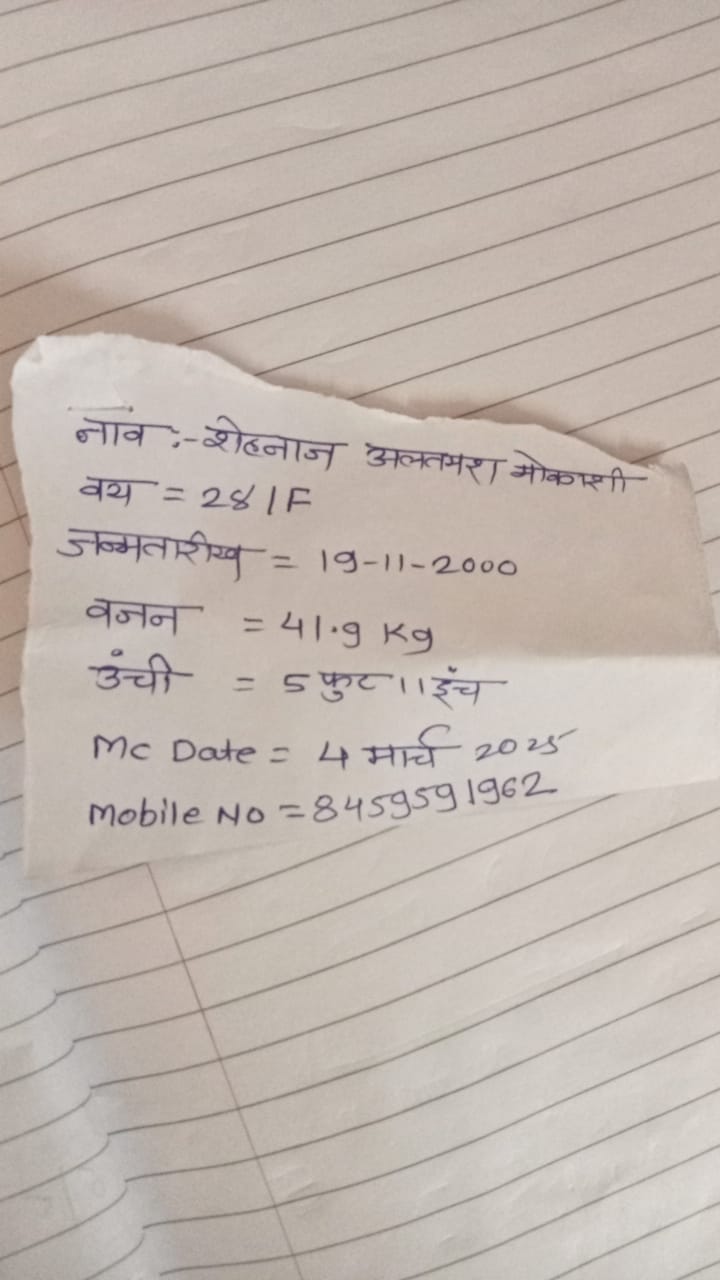 नाव :- शेहनाज अलतमश मोकाशी
वय = 28 / F
जन्मतारीख = 19-11-2000
वजन = 41.9 Kg
उंची = 5 फुट 11 इंच
Mc Date = 4 मार्च 2025
Mobile No = 8459591962